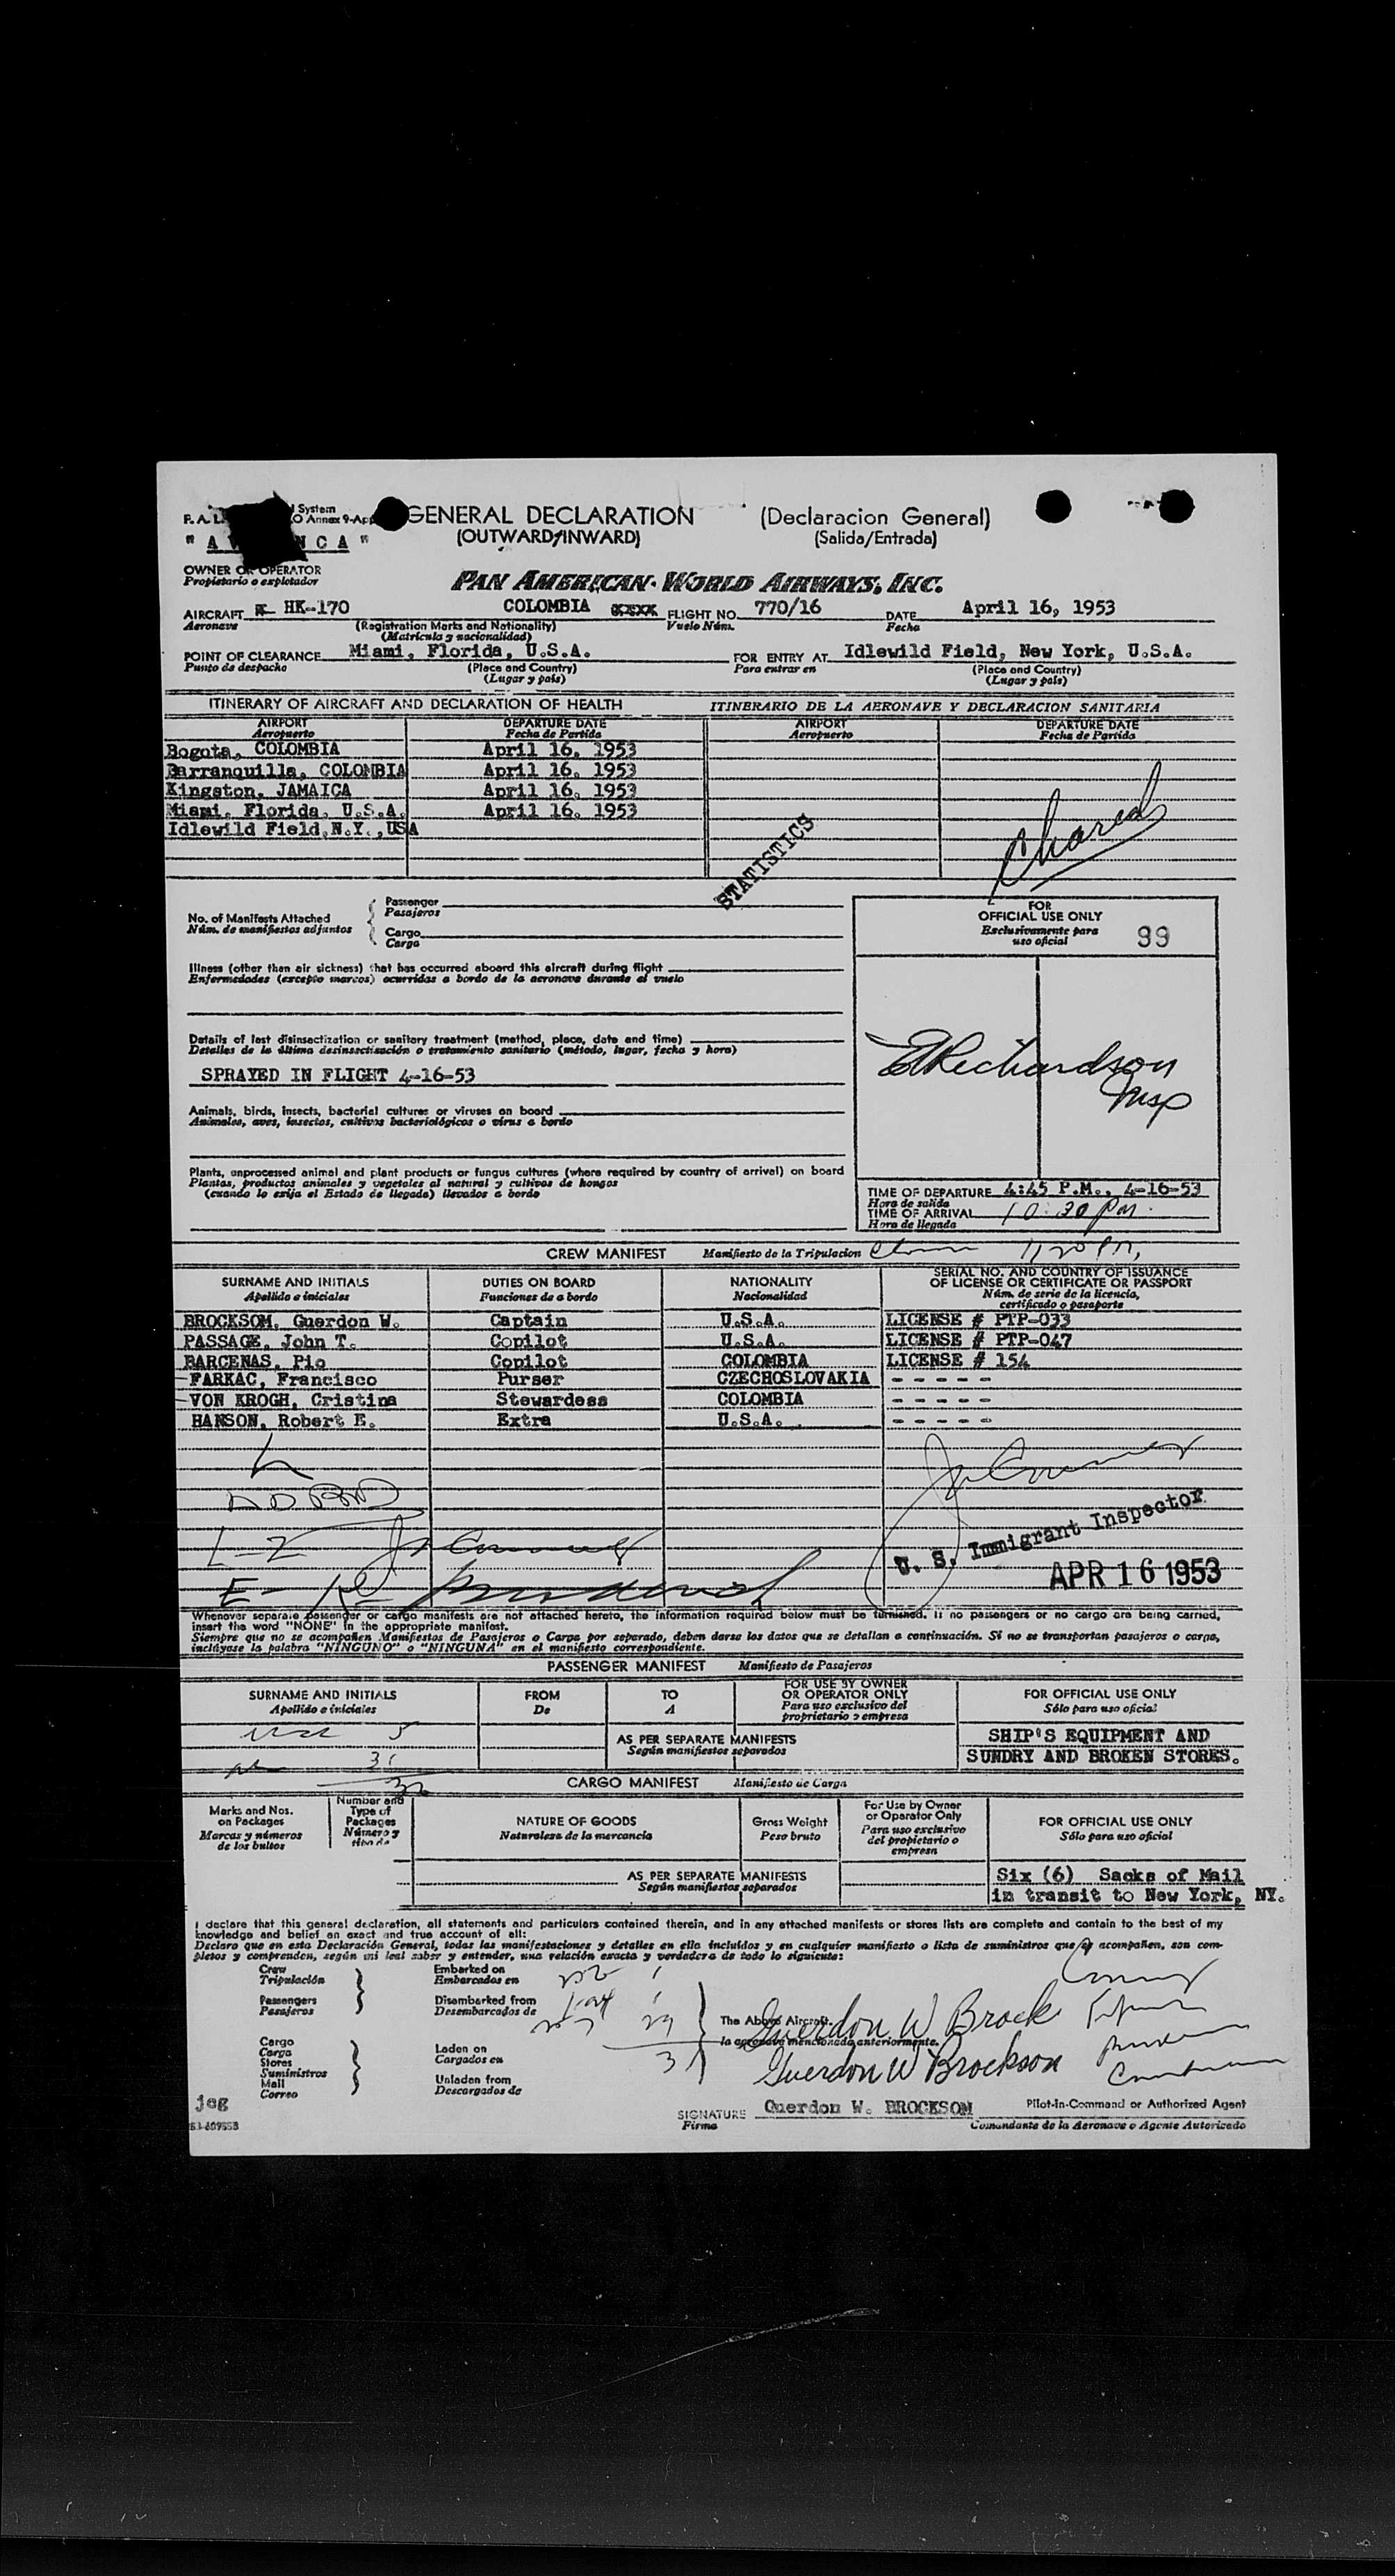 System
GENERAL DECLARATION (Declaracion General)
(OUTWARD/INWARD) (Salida/Entrada)
OWNER OR OPERATOR
Propietario o explotador
PAN AMERICAN WORLD AIRWAYS, INC.
AIRCRAFT HK-170 COLOMBIA FLIGHT NO. 770/16 DATE April 16, 1953
Aeronave (Registration Marks and Nationality) Vuelo Núm. Fecha
(Matrícula y nacionalidad)
POINT OF CLEARANCE Miami, Florida, U.S.A. FOR ENTRY AT Idlewild Field, New York, U.S.A.
Punto de despacho (Place and Country) Para entrar en (Place and Country)
(Lugar y país) (Lugar y país)
ITINERARY OF AIRCRAFT AND DECLARATION OF HEALTH ITINERARIO DE LA AERONAVE Y DECLARACION SANITARIA
AIRPORT DEPARTURE DATE AIRPORT DEPARTURE DATE
Aeropuerto Fecha de Partida Aeropuerto Fecha de Partida
Bogota, COLOMBIA April 16, 1953
Barranquilla, COLOMBIA April 16, 1953
Kingston, JAMAICA April 16, 1953
Miami, Florida, U.S.A. April 16, 1953
Idlewild Field,N.Y.,USA
STATISTICS
Passenger
Pasajeros
No. of Manifests Attached
Núm. de manifiestos adjuntos
Cargo
Carga
FOR
OFFICIAL USE ONLY
Exclusivamente para
uso oficial
99
Illness (other than air sickness) that has occurred aboard this aircraft during flight
Enfermedades (excepto mareos) ocurridas a bordo de la aeronave durante el vuelo
Details of last disinsectization or sanitary treatment (method, place, date and time)
Detalles de la última desinsectización o tratamiento sanitario (método, lugar, fecha y hora)
SPRAYED IN FLIGHT 4-16-53
Richardson
Insp
Animals, birds, insects, bacterial cultures or viruses on board
Animales, aves, insectos, cultivos bacteriológicos o virus a bordo
Plants, unprocessed animal and plant products or fungus cultures (where required by country of arrival) on board
Plantas, productos animales y vegetales al natural y cultivos de hongos
(cuando lo exija el Estado de llegada) llevados a bordo
TIME OF DEPARTURE 4:45 P.M., 4-16-53
Hora de salida
TIME OF ARRIVAL 10:30 pm.
Hora de llegada
CREW MANIFEST Manifiesto de la Tripulacion
SURNAME AND INITIALS DUTIES ON BOARD NATIONALITY SERIAL NO. AND COUNTRY OF ISSUANCE
OF LICENSE OR CERTIFICATE OR PASSPORT
Apellido e iniciales Funciones de a bordo Nacionalidad Núm. de serie de la licencia,
certificado o pasaporte
BROCKSOM, Guerdon W. Captain U.S.A. LICENSE # PTP-033
PASSAGE, John T. Copilot U.S.A. LICENSE # PTP-047
BARCENAS, Pio Copilot COLOMBIA LICENSE # 154
FARKAC, Francisco Purser CZECHOSLOVAKIA - - - - -
VON KROGH, Cristina Stewardess COLOMBIA - - - - -
HANSON, Robert E. Extra U.S.A. - - - - -
U. S. Immigrant Inspector
APR 16 1953
Whenever separate passenger or cargo manifests are not attached hereto, the information required below must be furnished. If no passengers or no cargo are being carried,
insert the word "NONE" in the appropriate manifest.
Siempre que no se acompañen Manifiestos de Pasajeros o Carga por separado, deben darse los datos que se detallan a continuación. Si no se transportan pasajeros o carga,
inclúyase la palabra "NINGUNO" o "NINGUNA" en el manifiesto correspondiente.
PASSENGER MANIFEST Manifiesto de Pasajeros
SURNAME AND INITIALS FROM TO FOR USE BY OWNER
OR OPERATOR ONLY FOR OFFICIAL USE ONLY
Apellido e iniciales De A Para uso exclusivo del
propietario o empresa Sólo para uso oficial
AS PER SEPARATE MANIFESTS SHIP'S EQUIPMENT AND
Según manifiestos separados SUNDRY AND BROKEN STORES.
CARGO MANIFEST Manifiesto de Carga
Marks and Nos.
on Packages
Marcas y números
de los bultos
Number and
Type of
Packages
Número y
NATURE OF GOODS
Naturaleza de la mercancía
Gross Weight
Peso bruto
For Use by Owner
or Operator Only
Para uso exclusivo
del propietario o
empresa
FOR OFFICIAL USE ONLY
Sólo para uso oficial
AS PER SEPARATE MANIFESTS Six (6) Sacks of Mail
Según manifiestos separados in transit to New York, NY.
I declare that this general declaration, all statements and particulars contained therein, and in any attached manifests or stores lists are complete and contain to the best of my
knowledge and belief an exact and true account of all:
Declaro que en esta Declaración General, todas las manifestaciones y detalles en ella incluídos y en cualquier manifiesto o lista de suministros que se acompañen, son com-
pletos y comprenden, según mi leal saber y entender, una relación exacta y verdadera de todo lo siguiente:
Crew Embarked on
Tripulación Embarcados en
Passengers Disembarked from
Pasajeros Desembarcados de
The Above Aircraft.
la aeronave mencionada anteriormente.
Guerdon W Brock
Guerdon W Brockson
Cargo
Carga
Stores
Suministros
Mail
Correo
Laden on
Cargados en
Unladen from
Descargados de
jeg
SIGNATURE Guerdon W. BROCKSOM Pilot-in-Command or Authorized Agent
Firma Comandante de la Aeronave o Agente Autorizado